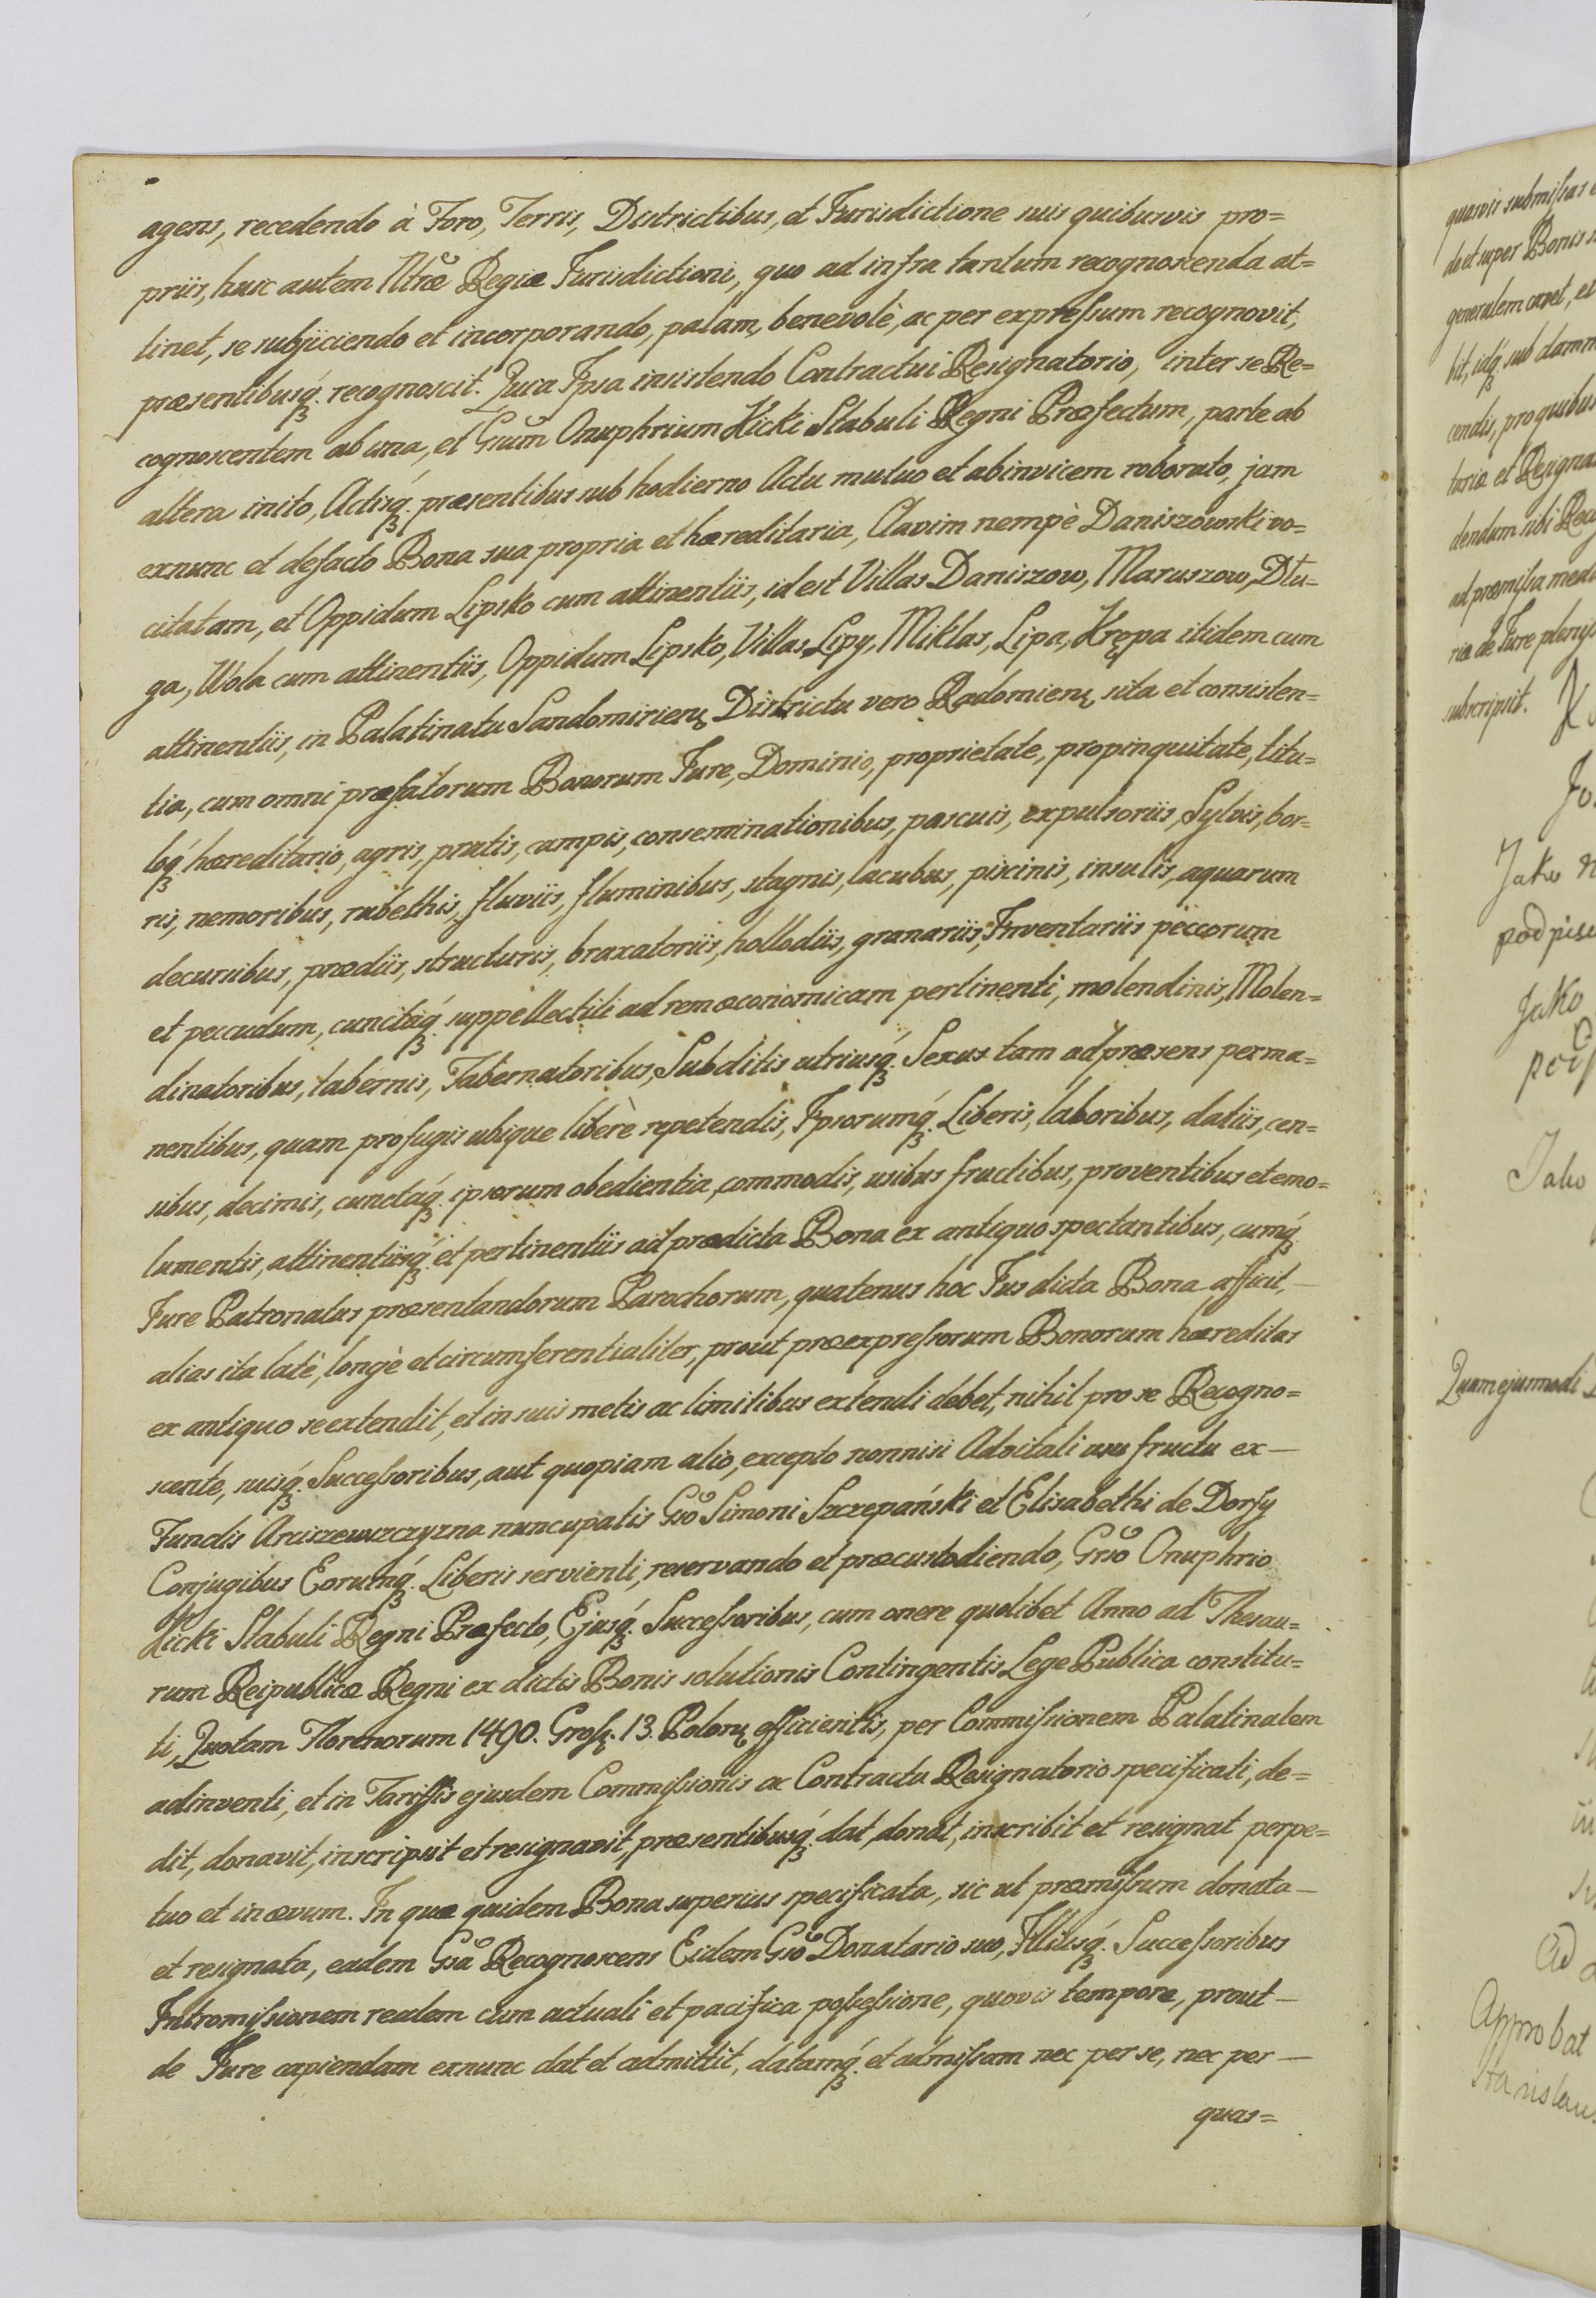 agens, recedendo à Foro, Terris, Districtibus, et Jurisdictione suis quibusvis pro=
priis, huic autem Nrae Regiae Jurisdictioni, quo ad infra tantum recognoscenda at=
tinet, se subjiciendo et incorporando, palam, benevolè, ac per expreſsum recognovit,
praesentibusq́ꝫ. recognoscit. Quia Ipsa insistendo Contractui Resignatorio, inter se Re=
cognoscentem ab una, et Gsum Onuphrium Kicki Stabuli Regni Praefectum, parte ab
altera inito, Actisq́ꝫ. praesentibus sub hodierno Actu mutuo et abinvicem roborato, jam
exnunc et defacto Bona sua propria et haereditaria, Clavim nempè Daniszowski vo=
citatam, et Oppidum Lipsko cum attinentiis, id est Villas Daniszow, Maruszow, Dłu=
ga, Wola cum attinentiis, Oppidum Lipsko, Villas Lipy, Miklas, Lipa, Krępa itidem cum
attinentiis, in Palatinatu Sandomirienꝫ Districtu vero Radomienꝫ sita et consisten=
tia, cum omni praefatorum Bonorum Jure, Dominio, proprietate, propinquitate, titu=
loq́ꝫ haereditario, agris, pratis, campis, conseminationibus, pascuis, expulsoriis, Sylvis, bor=
ris, nemoribus, rubethis, fluviis, fluminibus, stagnis, lacubus, piscinis, insulis, aquarum
decursibus, praediis, structuris, braxatoriis, hollodiis, granariis, Inventariis peccorum
et peccudum, cunctaq́ꝫ. suppellectili ad rem oeconomicam pertinenti, molendinis, Molen=
dinatoribus, tabernis, Tabernatoribus, Subditis utriusq́ꝫ. Sexus tam ad praesens perma=
nentibus, quam profugis ubique liberè repetendis, Ipsorumq́ꝫ. Liberis, laboribus, datiis, cen=
sibus, decimis, cunctáq́ꝫ. ipsorum obedientia, commodis, usibus fructibus, proventibus et emo=
lumentis, attinentiisq́ꝫ. et pertinentiis ad praedicta Bona ex antiquo spectantibus, cumq́ꝫ
Jure Patronatus praesentandorum Parochorum, quatenus hoc Jus dicta Bona afficit,—
alias ita latè, longè et circumferentialiter, prout praeexpreſsorum Bonorum haereditas
ex antiquo se extendit, et in suis metis ac limitibus extendi debet, nihil pro se Recogno=
scente, suisq́ꝫ. Succeſsoribus, aut quopiam alio, excepto nonnisi Advitali usu fructu ex—
Fundis Arciszewszczyzna nuncupatis Gso Simoni Szczepański et Elisabethi de Dorſy
Conjugibus Eorumq́ꝫ. Liberis servienti, reservando et praecustodiendo, Gnso Onuphrio
Kicki Stabuli Regni Praefecto, Ejusq́ꝫ. Succeſsoribus, cum onere quolibet Anno ad Thesau=
rum Reipublicae Regni ex dictis Bonis solutionis Contingentis Lege Publica constitu=
ti, Quotam Florenorum 1490. Groſꝫ. 13. Polonꝫ efficientis, per Commiſsionem Palatinalem
adinventi, et in Tariffis ejusdem Commiſsionis ac Contractu Resignatorio specificati, de=
dit, donavit, inscripsit et resignavit, praesentibusq́ꝫ. dat, donat, inscribit et resignat perpe=
tuo et in aevum. In quae quidem Bona superius specificata, sic ut praemiſsum donata—
et resignata, eadem Gsa Recognoscens Eidem Gso Donatario suo, Illiusq́ꝫ. Succeſsoribus
Intromiſsionem realem cum actuali et pacifica poſseſsione, quovis tempore, prout—
de Jure capiendam exnunc dat et admittit, datamq́ꝫ. et admiſsam nec per se, nec per—
quas=
quasvis submiſsas
do et super Bonis
generalem cavet, et
bit, idq́ꝫ sub damn
cendis, pro quibus
tario et Resigna
dendum sibi
ad praemiſsa
ria de Jure
subscripsit.
Jako
podpisu
Jako
Jako
Quam ejusmodi
Ad
Approbat
Stanislaus